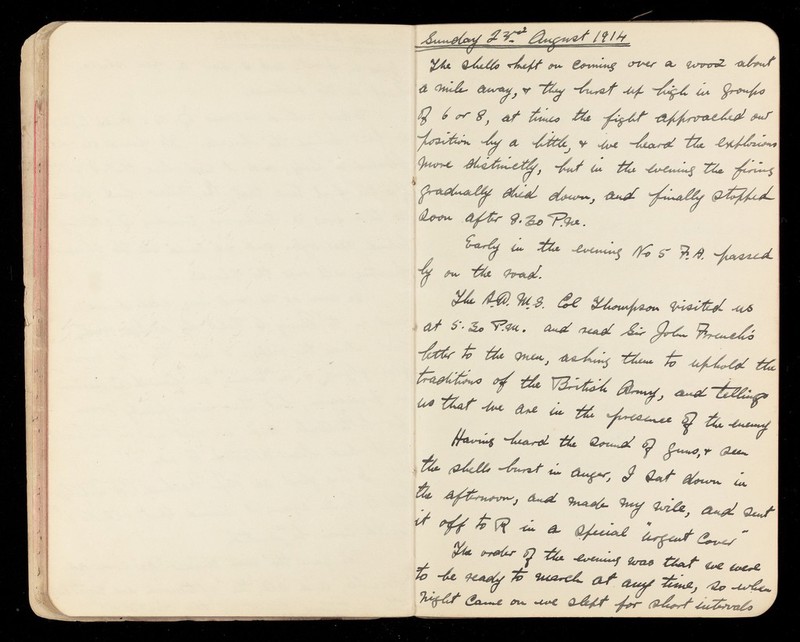 Sunday 23rd August 1914
The shells kept on coming over a wood about
a mile away, & they burst up high in groups
of 6 or 8, at times the fight approached our
position by a little, & we heard the explosions
more distinctly, but in the evening the firing
gradually died down, and finally stopped
soon after 8.30 P.m.
Early in the evening No 5 F.A. passed
by on the road.
The A.D.M.S. Col Thompson visited us
at 5.30 P.m. and read Sir John French's
letter to the men, asking them to uphold the
traditions of the British Army, and telling
us that we are in the presence of the enemy
Having heard the sound of guns, & seen
the shells burst in anger, I sat down in
the afternoon, and made my will, and sent
it off to R in a special "urgent cover"
The order of the evening was that we were
to be ready to march at any time, so when
night came on we slept for short intervals